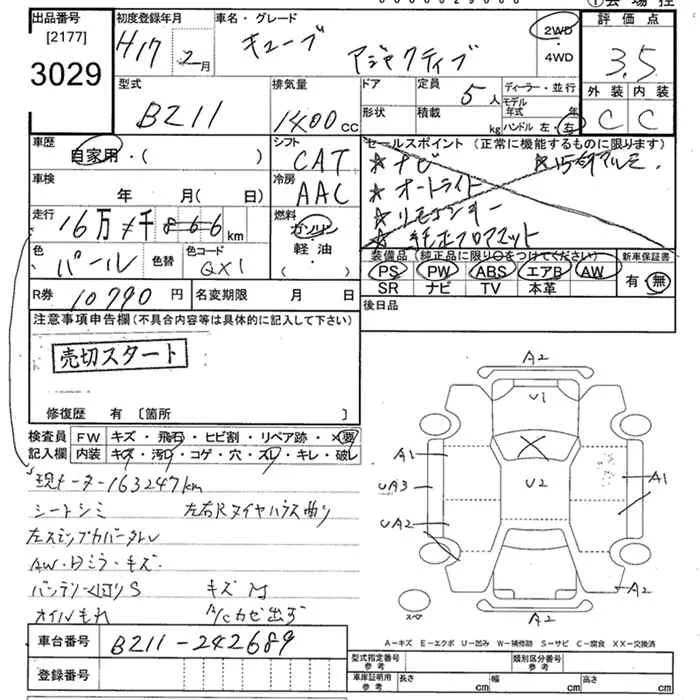 出品番号
[2177]
3029
初度登録年月
H17 2月
車名・グレード
キューブ アジャクティブ
2WD
・
4WD
評価点
3.5
外装 内装
C C
型式
BZ11
排気量
1400cc
ドア
形状
定員
5人
積載
kg
ディーラー・並行
モデル年式 年
ハンドル 左・右
車歴
自家用・( )
シフト
CAT
車検
年 月(日)
冷房
AAC
走行
16万 千866km
燃料
ガソリン
軽油・
色
パール
色替
色コード
QX1
R券 10790円
名変期限 月 日
セールスポイント(正常に機能するものに限ります)
☆ナビ ☆15インチアルミ
☆オートライト
☆リモコンキー
☆純正フロアマット
装備品(純正品に限り○をつけてください)
PS PW ABS エアB AW
SR ナビ TV 本革
新車保証書
有・無
後日品
注意事項申告欄(不具合内容等は具体的に記入して下さい)
売切スタート
修復歴 有 [箇所 ]
検査員 FW キズ・飛石・ヒビ割・リペア跡・×要
記入欄 内装 キズ・汚レ・コゲ・穴・スレ・キレ・破レ
現メーター163247km
シートシミ 左右Rタイヤハウス曲り
左ステップカバーメクレ
AW・ドミラ・キズ
バッテリー S キズ
オイルもれ A/Cカゼ出ず
A2
U1
A1
U2
A1
UA3
UA2
A2
A2
スペア
A-キズ E-エクボ U-凹み W-補修跡 S-サビ C-腐食 XX-交換済
車台番号 BZ11-242689
登録番号
型式指定番号 参考
類別区分番号 参考
車庫証明用 参考
長さ cm 幅 cm 高さ cm